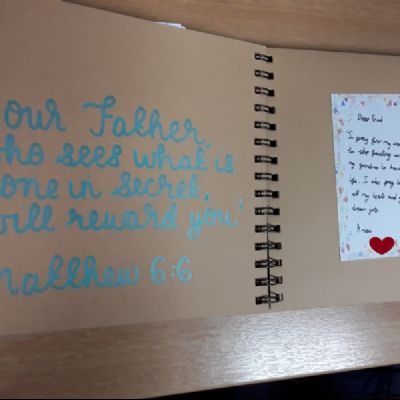 our Father,
who sees what is
done in secret,
will reward you'
Matthew 6:6
Dear God
I pray for my
to stop
my grandma to
life. I also pray
all my tests and
dream job.
Amen